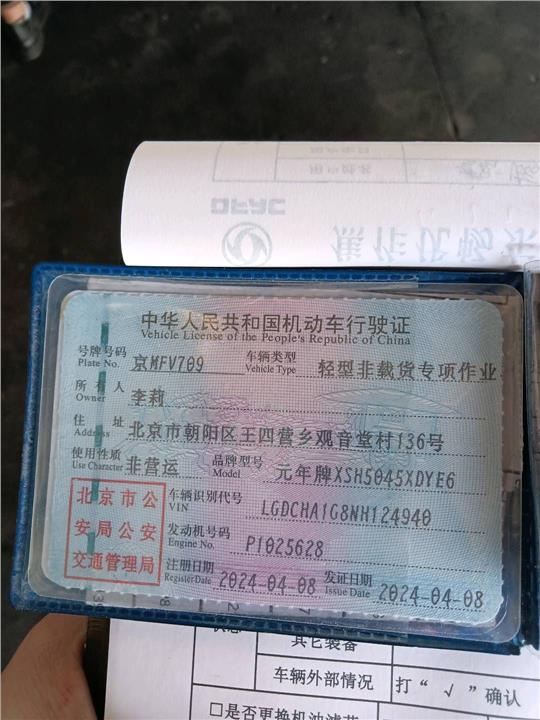 DFAC
中华人民共和国机动车行驶证
Vehicle License of the People's Republic of China
号牌号码 京MFV709 车辆类型 轻型非载货专项作业
Plate No. Vehicle Type
所有人 李莉
Owner
住址 北京市朝阳区王四营乡观音堂村136号
Address
使用性质 非营运 品牌型号 元年牌XSH5045XDYE6
Use Character Model
北京市公
安局公安
交通管理局
车辆识别代号 LGDCHA1G8NH124940
VIN
发动机号码 P1025628
Engine No.
注册日期 2024-04-08 发证日期 2024-04-08
Register Date Issue Date
其它装备
车辆外部情况 打“√”确认
□是否更换机油滤芯